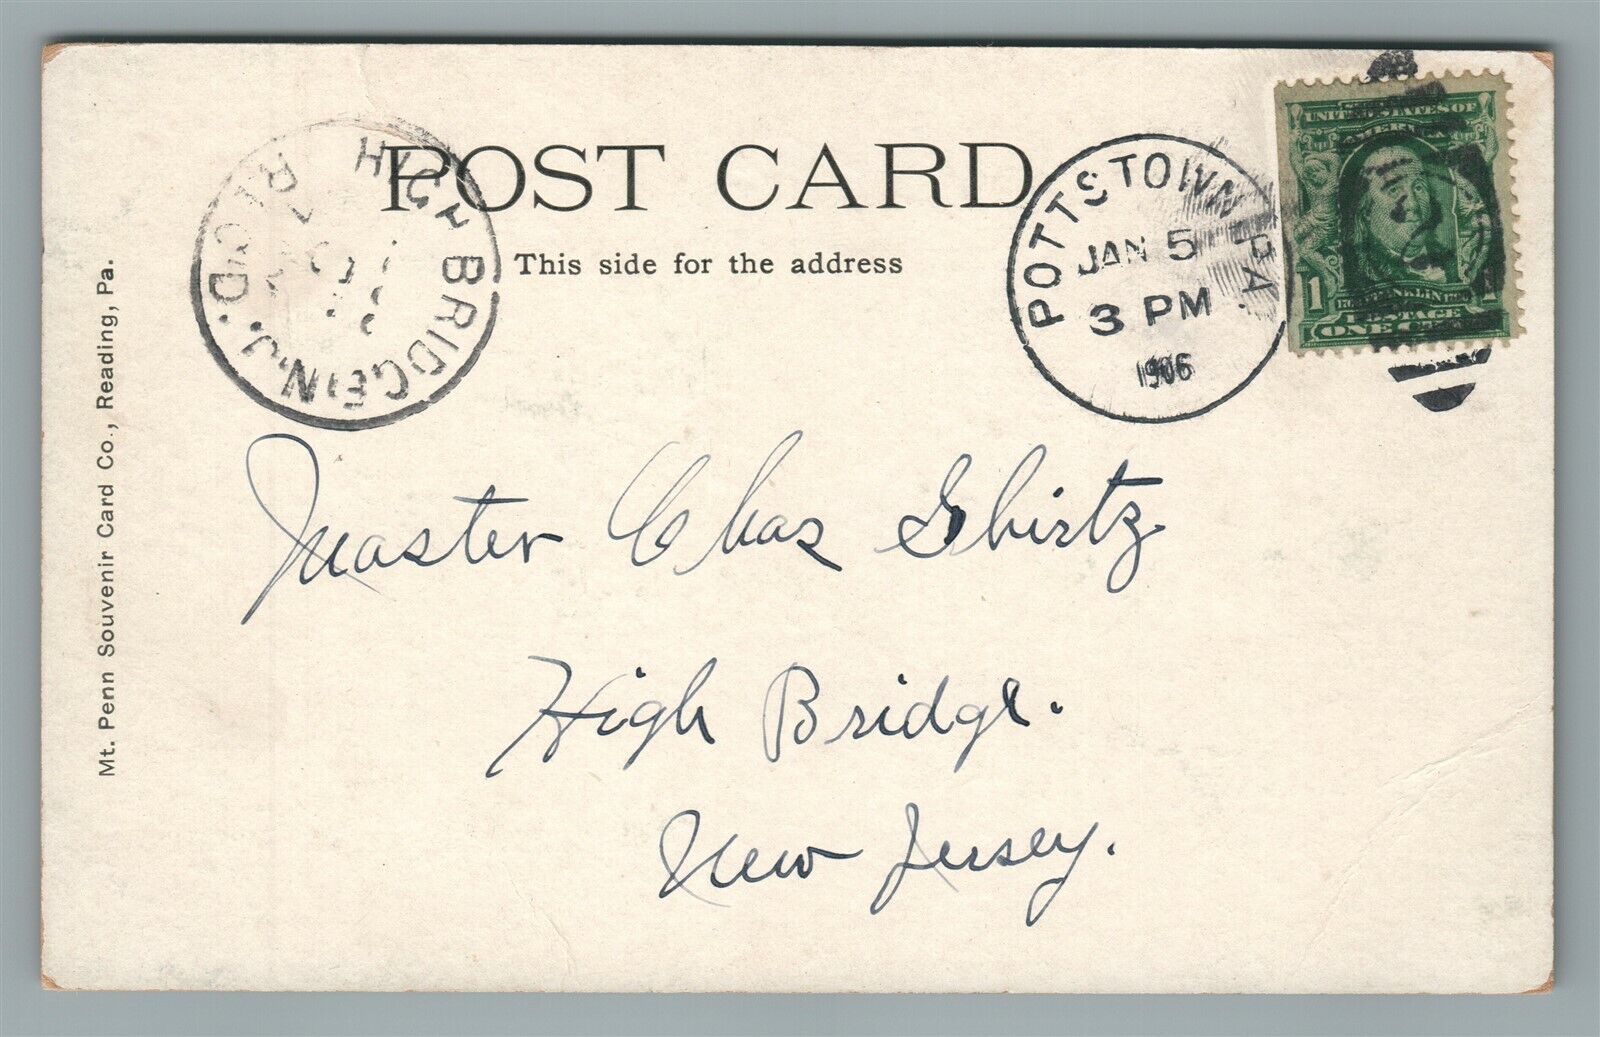 POST CARD
This side for the address
Mt. Penn Souvenir Card Co., Reading, Pa.
HIGH BRIDGE, N.J.
REC'D.
POTTSTOWN PA.
JAN 5
3 PM
1906
UNITED STATES OF
AMERICA
1 1
FRANKLIN
POSTAGE
ONE
Master Chas Shirtz
High Bridge.
New Jersey.